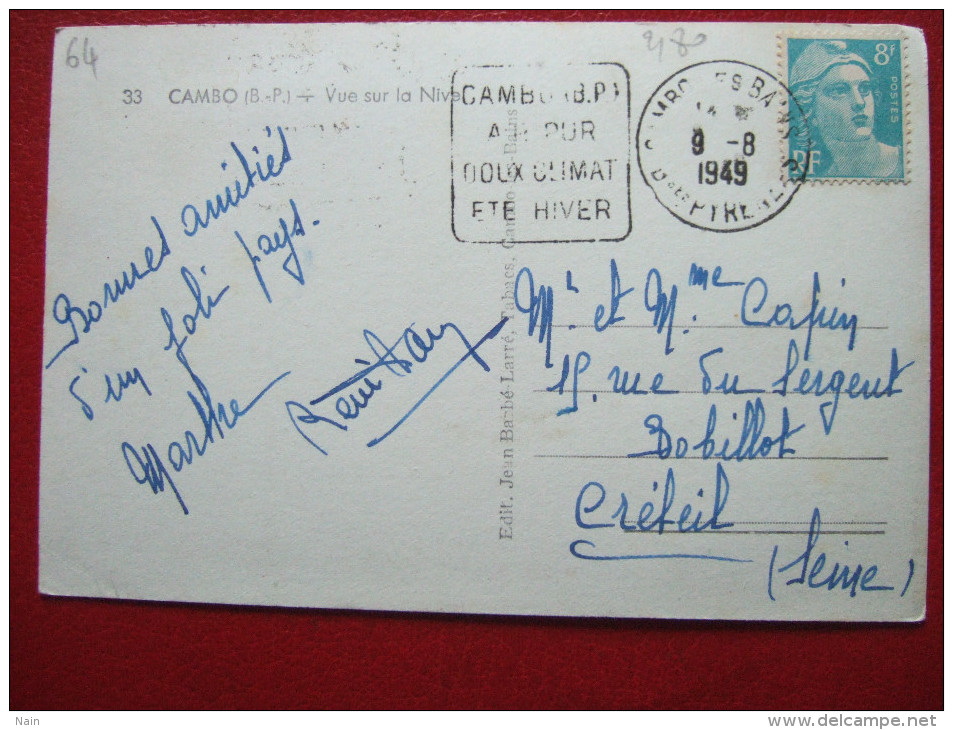 64
33 CAMBO (B.-P.) ÷ Vue sur la Nive
CAMBO (B.P.)
AIR PUR
DOUX CLIMAT
ETE HIVER
CAMBO LES BAINS
9 -8
1949
BSES PYRENEES
8F
POSTES
RF
Bonnes amitiés
d'un joli pays.
Marthe
Mr et Mme Capin
15. rue du Sergent
Bobillot
Créteil
(Seine)
Edit. Jean Barbé-Larré, Tabacs, Cambo-les-Bains
Nain
www.delcampe.net